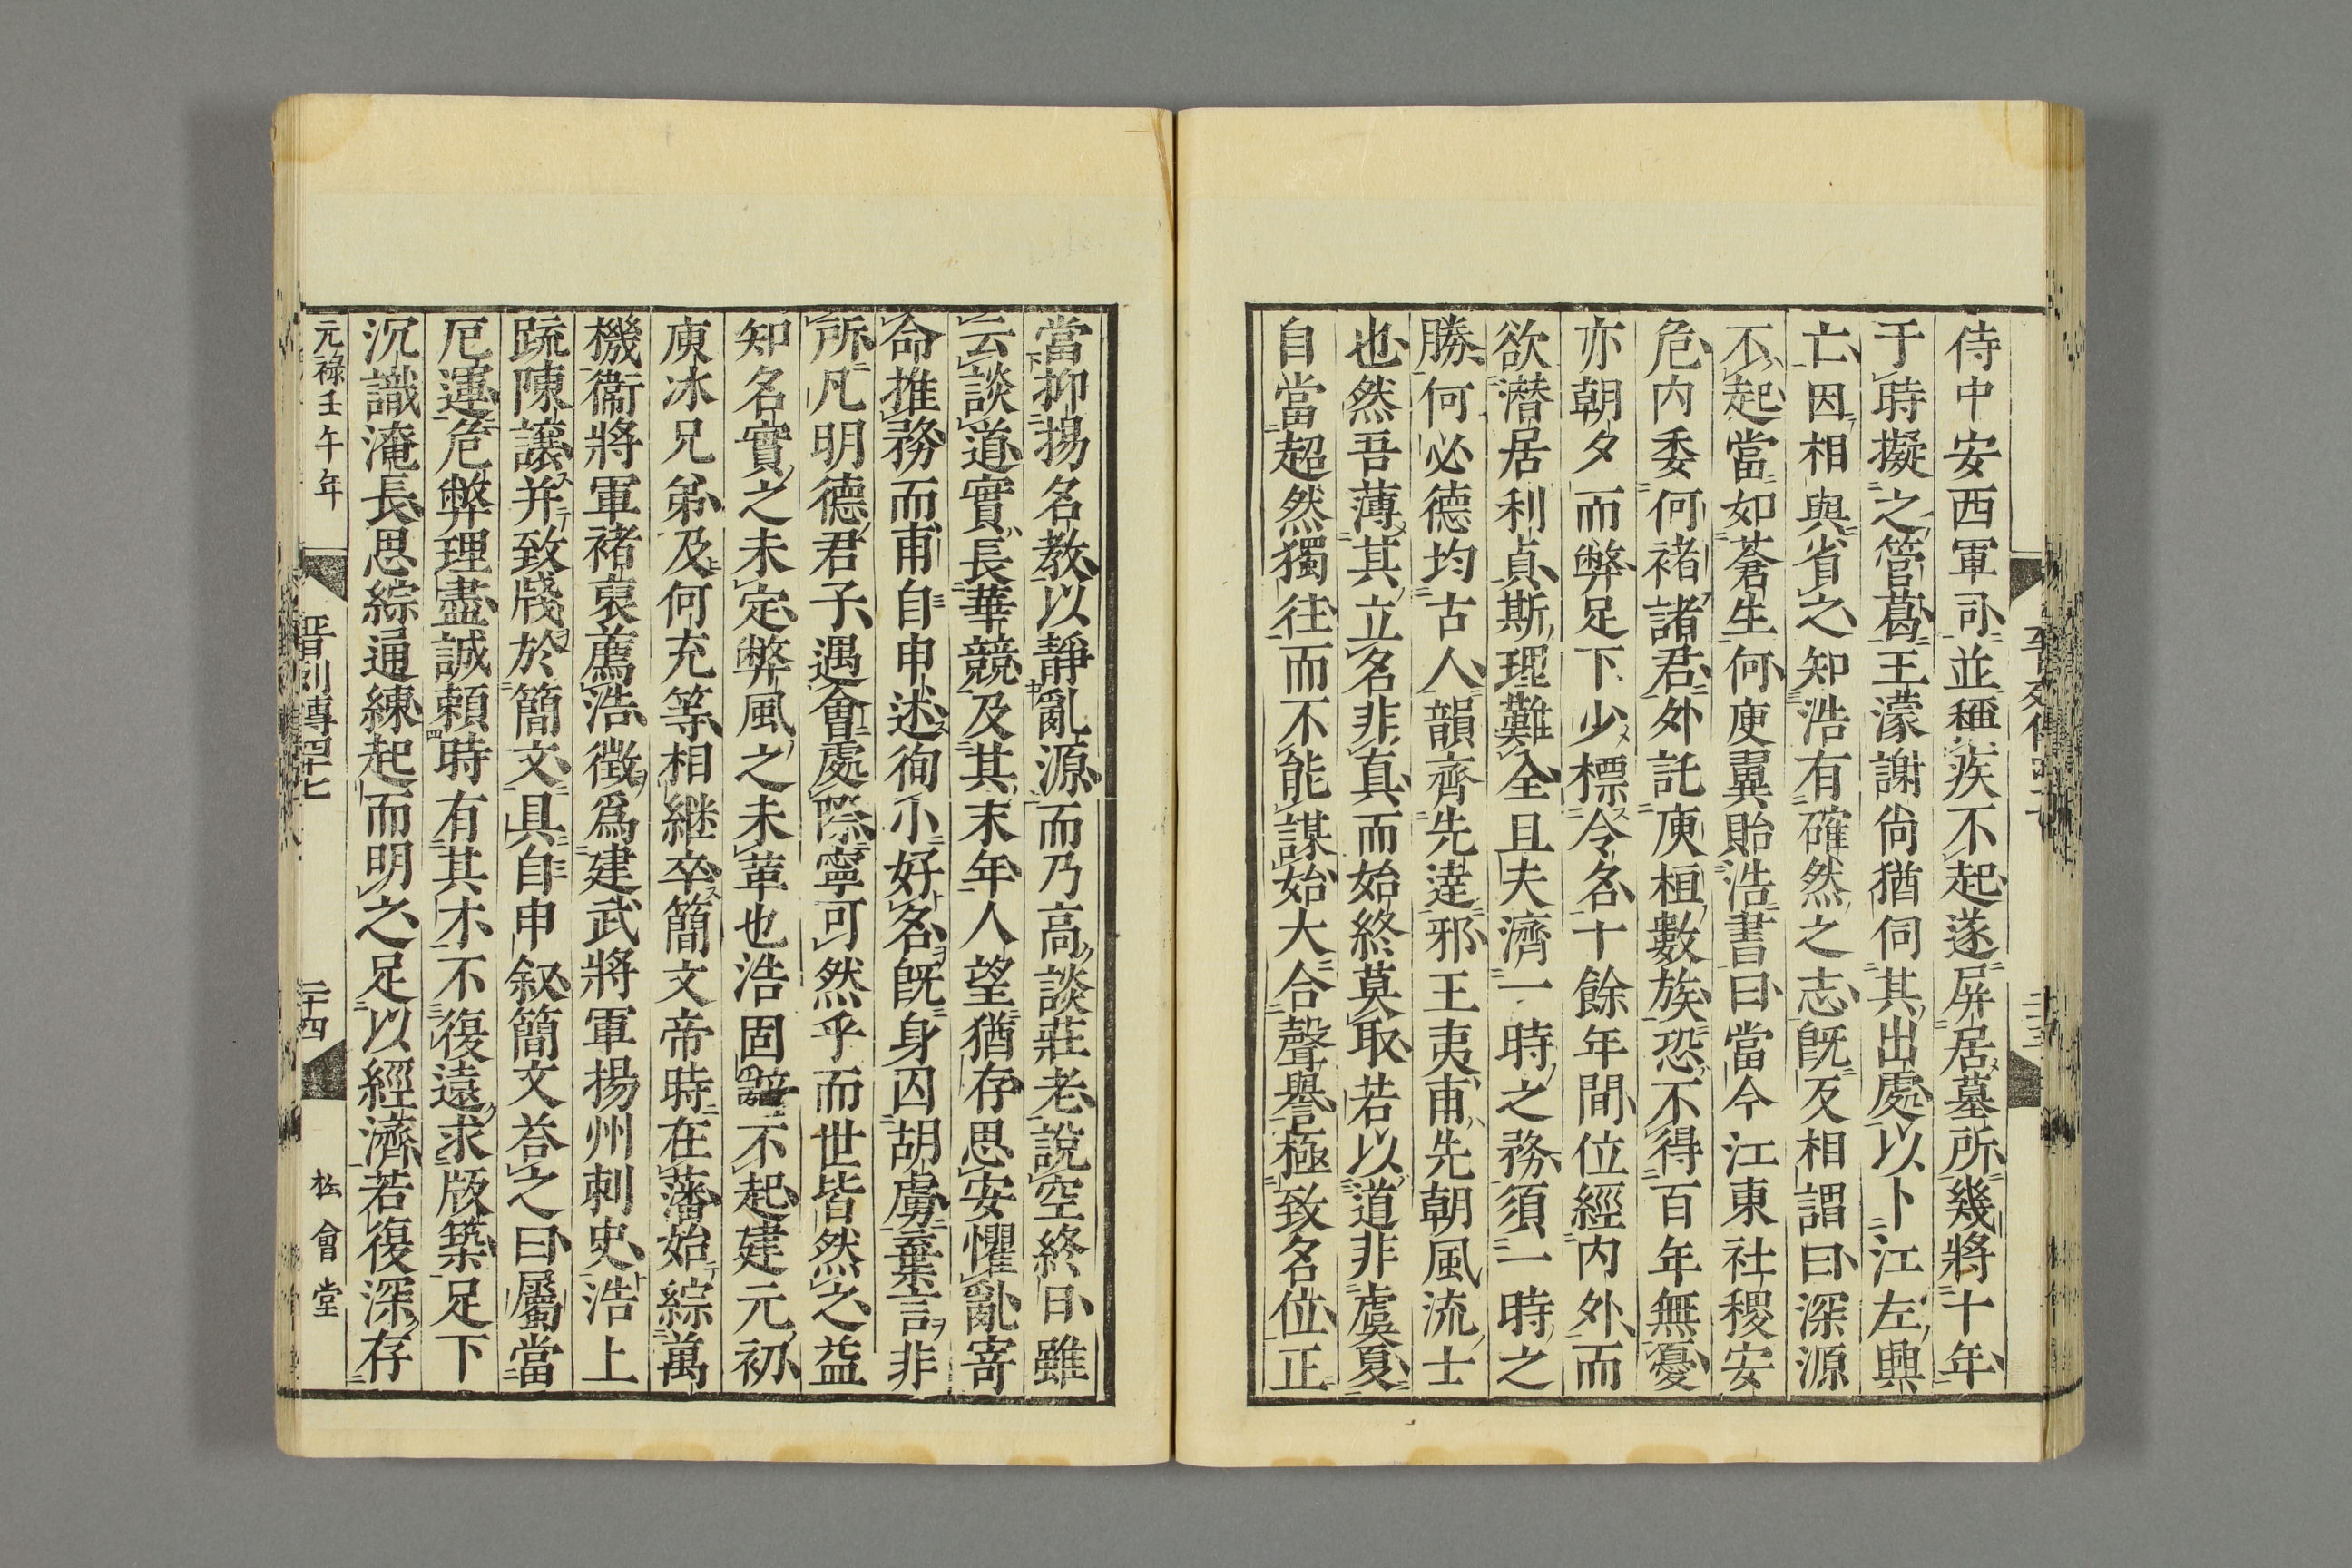 侍中安西軍司並稱疾不起遂屏居墓所幾將十年
于時擬之管葛王濛謝尚猶伺其出處以卜江左興
亡因相與省之知浩有確然之志既反相謂曰深源
不起當如蒼生何庾翼貽浩書曰當今江東社稷安
危内委何褚諸君外託庾桓數族恐不得百年無憂
亦朝夕而弊足下少標令名十餘年間位經内外而
欲潜居利貞斯理難全且夫濟一時之務須一時之
勝何必德均古人韻齊先達邪王夷甫先朝風流士
也然吾薄其立名非真而始終莫取若以道非虞夏
自當超然獨往而不能謀始大合聲譽極致名位正
當抑揚名教以靜亂源而乃高談莊老說空終日雖
云談道實長華競及其末年人望猶存思安懼亂寄
命推務而甫自申述徇小好名既身囚胡虜棄言非
所凡明德君子遇會處際寧可然乎而世皆然之益
知名實之未定弊風之未革也浩固辭不起建元初
庾冰兄弟及何充等相継卒簡文帝時在藩始綜萬
機衞將軍褚裒薦浩徵爲建武將軍揚州刺史浩上
䟽陳讓并致牋於簡文具自申叙簡文荅之曰屬當
厄運危弊理盡誠頼時有其才不復遠求版築足下
沉識淹長思綜通練起而明之足以經濟若復深存
元祿壬午年
晋列傳四十七
二十四
松會堂